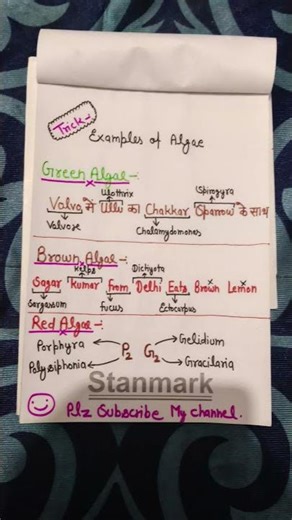 Trick-
Examples of Algae
Green Algae-:
Ulothrix Spirogyra
Valva में Ullu का Chakkar Sparrow के साथ
Valvose Chalamydomones
Brown Algae-:
Kelps Dictyota
Sagar Kumar from Delhi Eats Brown Lemon
Sargassum fucus Ectocarpus
Red Algae-:
Porphyra Gelidium
P2 G2
Polysiphonia Gracilaria
Stanmark
Plz Subscribe My channel.